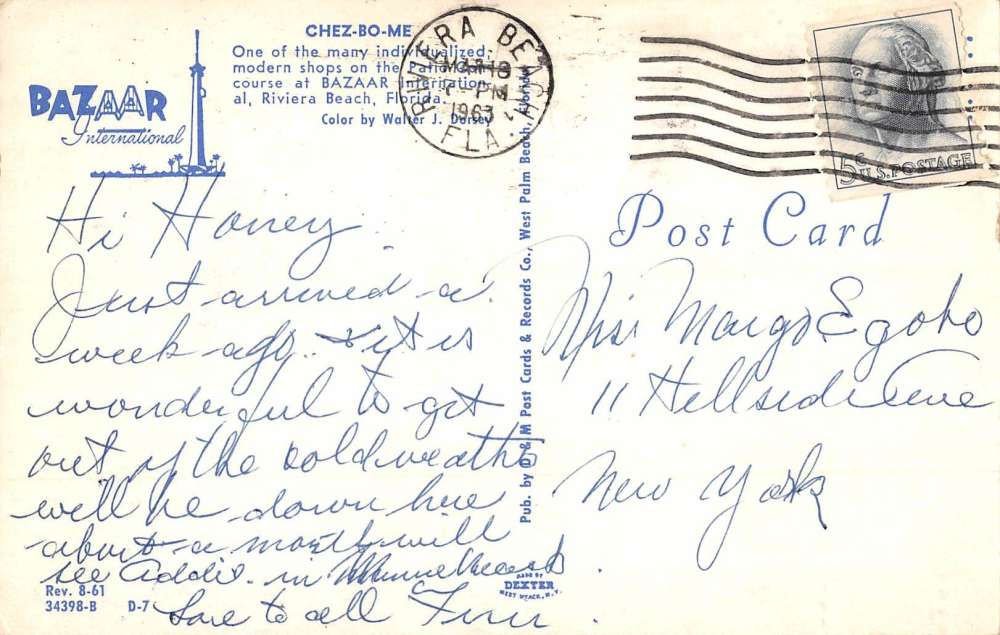 CHEZ-BO-ME
One of the many individualized,
modern shops on the Patio Con-
course at BAZAAR Internation-
al, Riviera Beach, Florida.
Color by Walter J. Dorsey
BAZAAR
International
RIVIERA BEACH
MAR 18
PM
1963
FLA.
5c
U.S. POSTAGE
Post Card
Hi Honey
Just arrived a
week ago. & it is
wonderful to get
out of the cold weather
will be down here
about a month will
see Addie in Miami Beach
Love to all
Miss Margo Egobo
11 Hillside Ave
New York
Pub. by D & M Post Cards & Records Co., West Palm Beach, Florida
MADE BY
DEXTER
WEST NYACK, N.Y.
Rev. 8-61
34398-B D-7